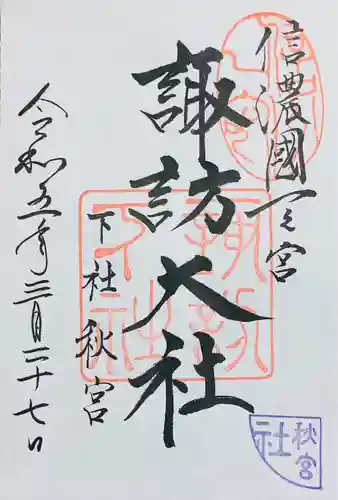 信濃國一之宮
諏訪大社
下社秋宮
令和五年三月二十七日
秋宮
社